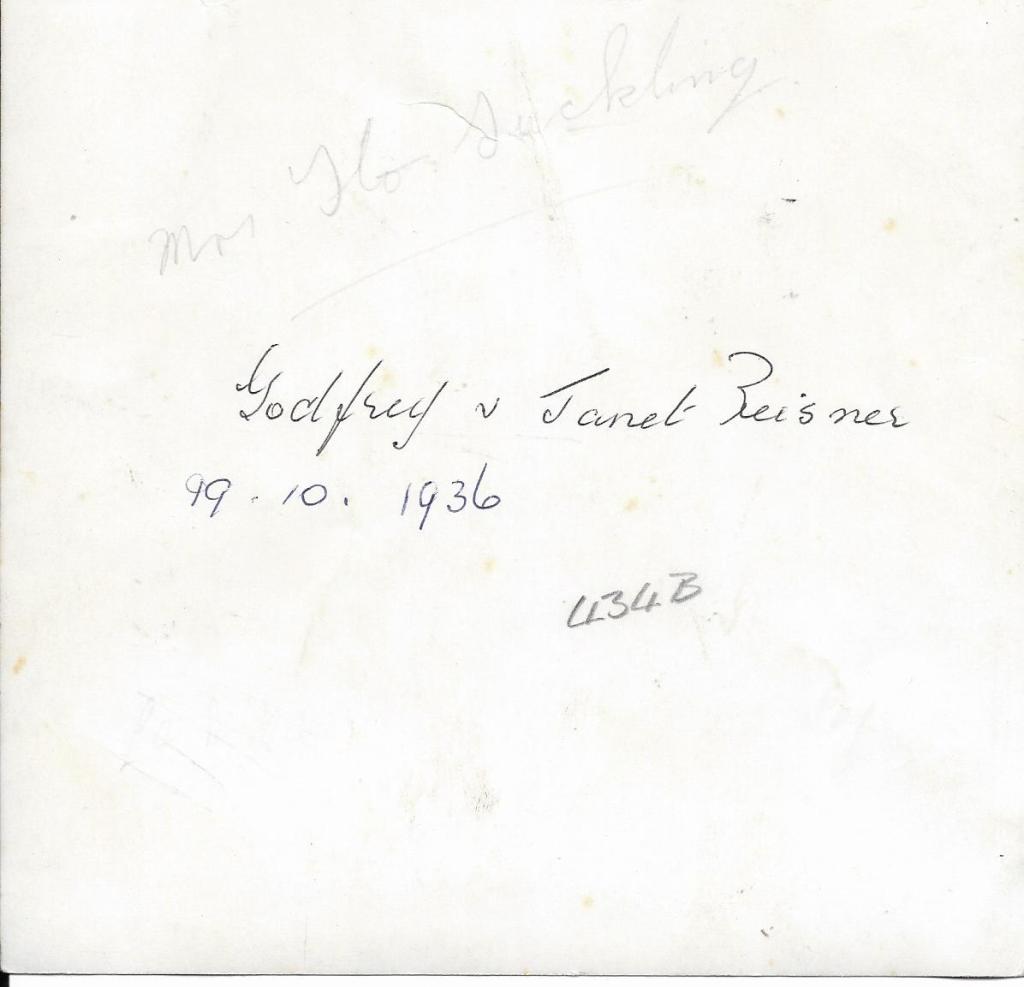 Mrs. Flo. Suckling.
Godfrey v Janet Reisner
99.10. 1936
434B